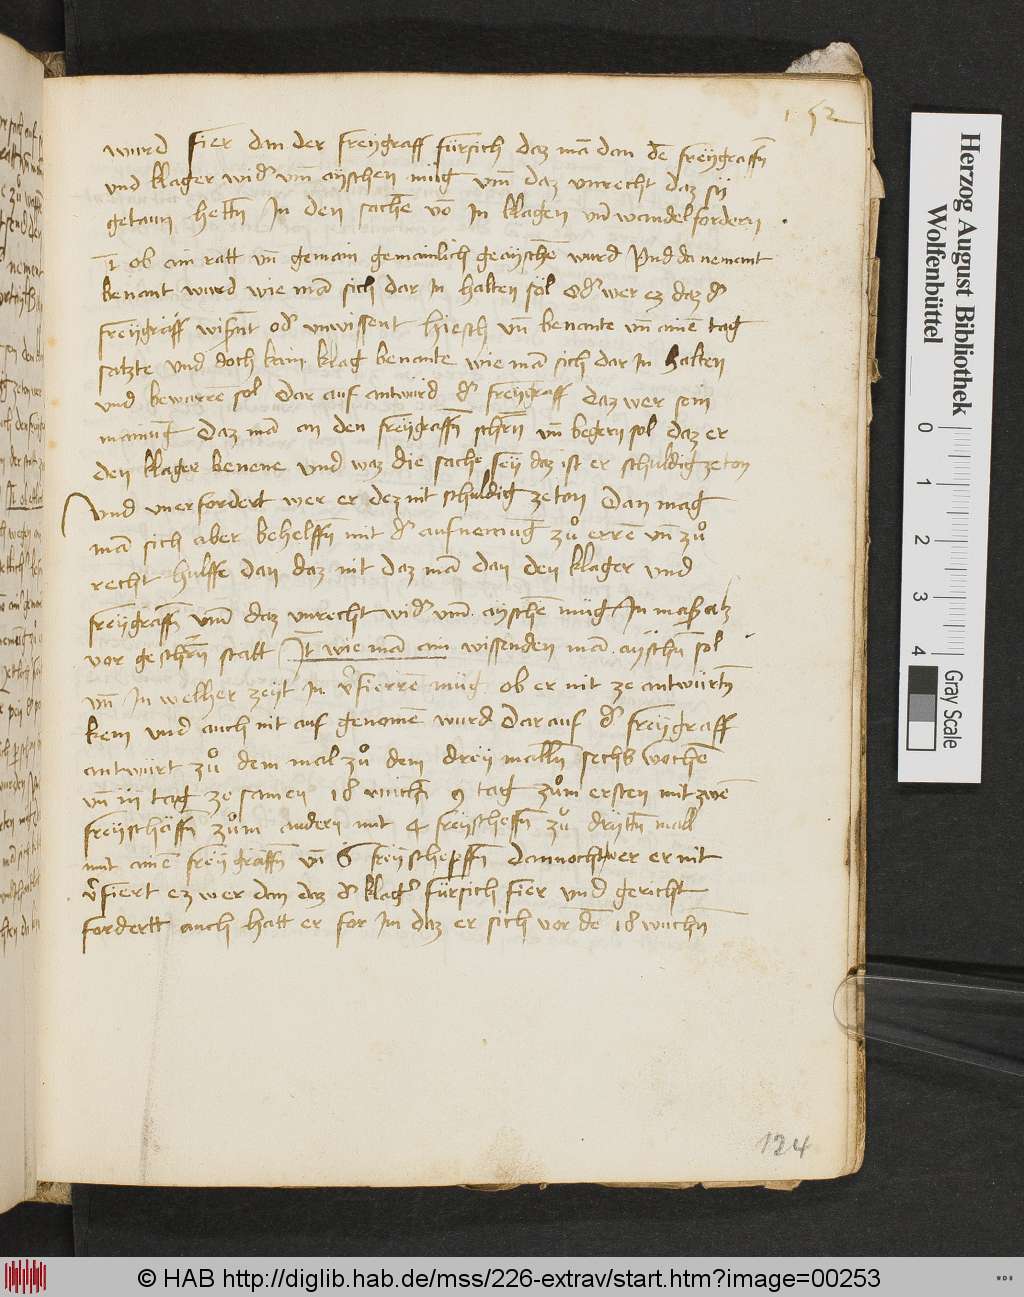 152
wurd fier dan der freygraff fürsich daz mā dan dē freygraffn̄
und klager widˀ um̄ ayschen müg um̄ daz unrecht daz sy
getaun hettn̄ In den sachē vō In klagen un̄ wandel fordern
It ob ain ratt un̄ gemain gemainlich geayschē wurd Und da nemant
benant wurd wie mā sich dar In halten sol Odˀ wer ez daz dˀ
freygraff wissnt odˀ unwissent hiesch un̄ benante un̄ ainē tag
satzte und doch kain klag benante wie mā sich dar In halten
und bewarrē sol Dar auf antwurd dˀ freygraff daz wer sein
mainūg Daz mā an den freygraffn̄ schrn̄ un̄ begern sol daz er
den klager benene und waz die sache sey daz ist er schuldig ze ton
und unerfordert wer er dez nit schuldig ze ton Dan mag
mā sich aber behelffn̄ mit dˀ aufnemūg zů errē un̄ zů
recht hulffe dan daz nit daz mā dan den klager und
freygraffn̄ um̄ daz unrecht widˀ um̄ ayschē müg In mass alz
vor geschrn̄ statt It wie mā ain wissenden mā ayschn̄ sol
un̄ In welher zeyt In vˀfierrē müg ob er nit ze antwürtn̄
kem und auch nit auf genomē wurd Dar auf dˀ freygraff
antwürt zů dem mal zů dem dreymalln̄ sechs wochē
un̄ iij tag ze samen 18 wuchn̄ 9 tag zům ersten mit zwē
freyschäffn̄ zům andern mit 4 freyscheffn̄ zů drytn̄ mall
mit ainē freygraffn̄ un̄ 6 freyschepffn̄ dannocht wer er nit
vˀfiert ez wer dan daz dˀ klagˀ fürsich fier und gericht
fordertt auch hatt er for Im daz er sich vor dē 18 wuchn̄
124
Herzog August Bibliothek
Wolfenbüttel
0 1 2 3 4
Gray Scale
© HAB http://diglib.hab.de/mss/226-extrav/start.htm?image=00253